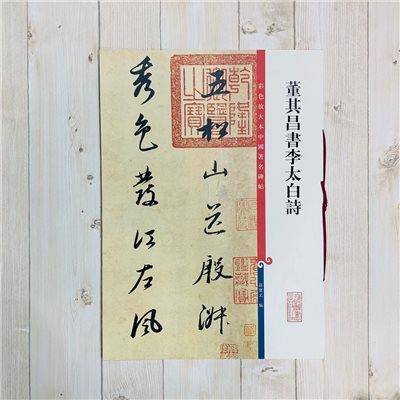 董其昌書李太白詩
彩色放大本中國著名碑帖
孫寶文 編
五松山送殷淑
秀色發江左風
乾隆
御覽
之寶